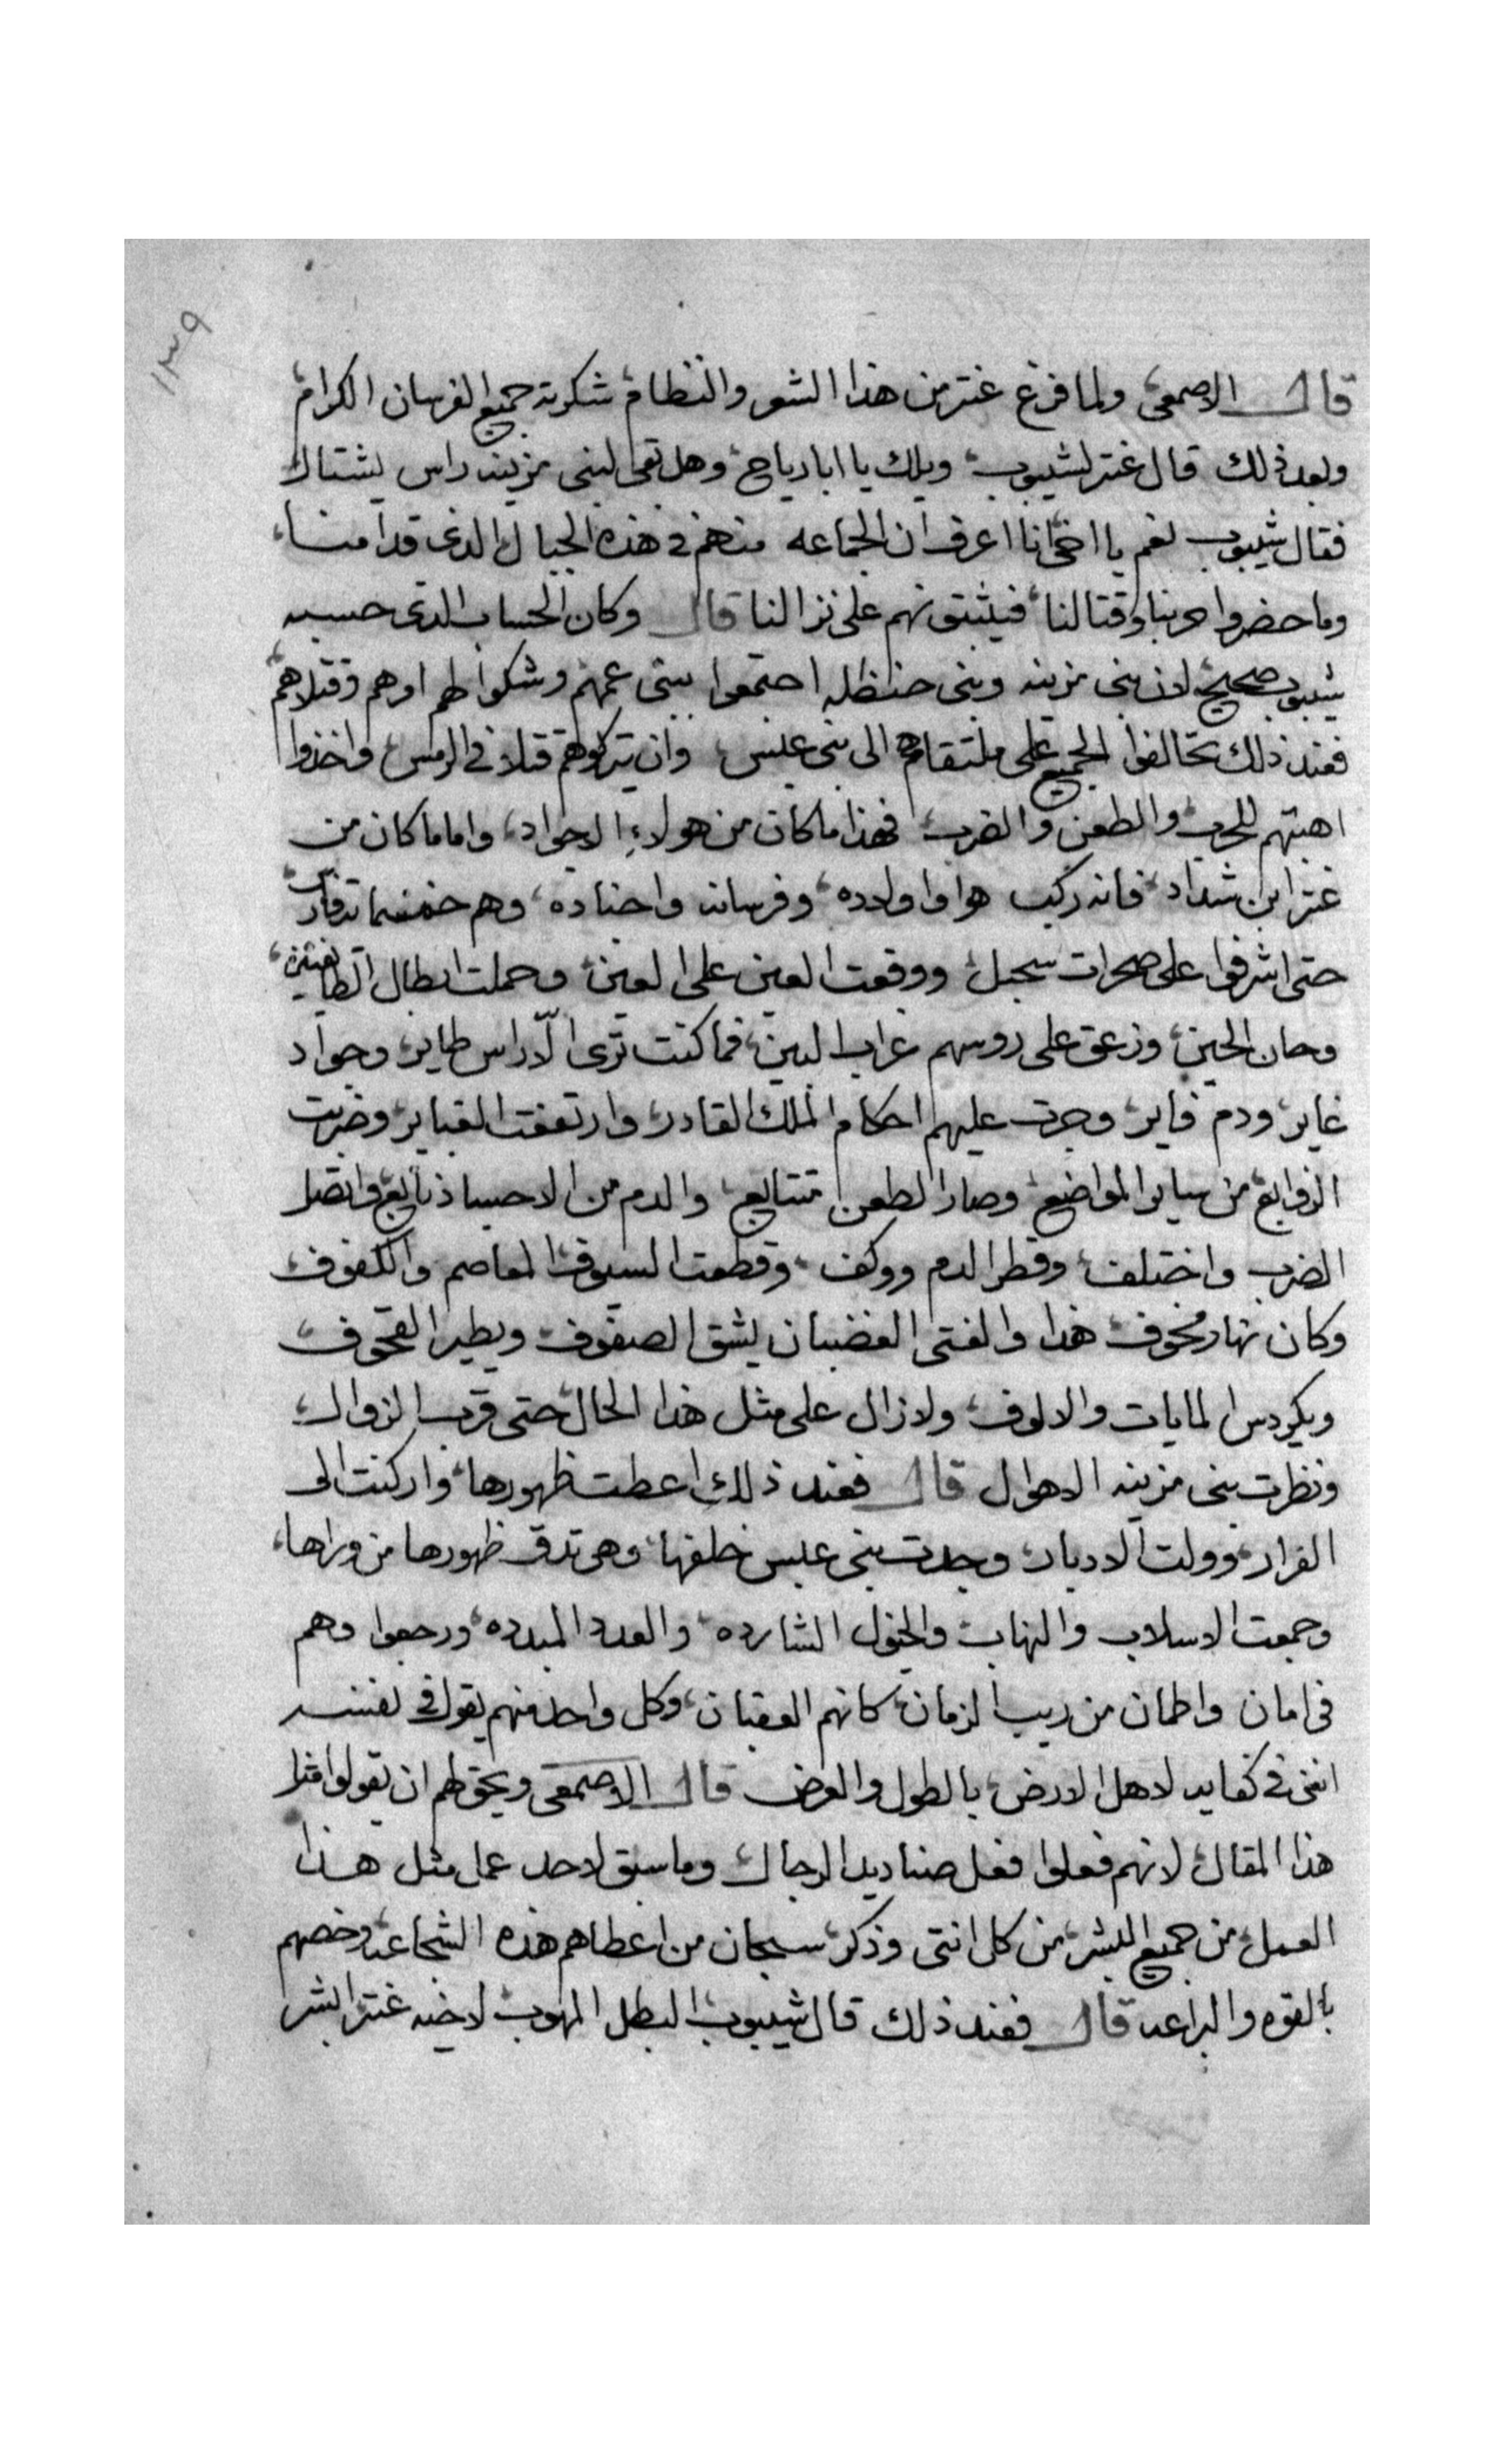 ١٣٩
قال الاصمعى ولما فرغ عنتر من هذا الشعر والنظام شكرته جميع الفرسان الكرام
وبعد ذلك قال عنتر لشيبوب ويلك يا ابا رياح وهل بقى لبنى مزينه راس يشتال
فقال شيبوب نعم يا اخى انا اعرف ان الجماعه منهم فى هذه الجبال الذى قدامنا
وما حضروا حربنا وقتالنا فيثبتونهم على نزالنا قال وكان الحساب الذى حسبه
شيبوب صحيح لان بنى مزينه وبنى حنظله اجتمعوا ببنى عمهم وشكوا لهم امرهم وقتلاهم
فعند ذلك تحالفوا الجميع على ملتقاهم الى بنى عبس وان يتركوهم قتلا فى الرمس واخذوا
اهبتهم للحرب والطعن والضرب فهذا ما كان من هولاءِ الاجواد واما ما كان من
عنتر ابن شداد فانه ركب هوا واولاده وفرسانه واجناده وهم خمسمايه فارس
حتى اشرفوا على صحرات سجبل ووقعت العين على العين وحملت ابطال الطايفتين
وحان الحين وزعق على روسهم غراب البين فما كنت ترى الّا راس طاير وجواد
غاير ودم فاير وجرت عليهم احكام الملك القادر وارتفعت الغباير وضربت
الزوابع من ساير المواضع وصار الطعن متتابع والدم من الاجساد نابع واتصل
الضرب واختلف وقطر الدم ووكف وقطعت السيوف المعاصم والكفوف
وكان نهار مخوف هذا والفتى الغضبان يشق الصفوف ويطير القحوف
ويكردس المايات والالوف ولا زال على مثل هذا الحال حتى قرب الزوال
ونظرت بنى مزينه الاهوال قال فعند ذلك اعطت ظهورها واركنت الى
الفرار وولت الادبار وجدت بنى عبس خلفها وهى تدق ظهورها من وراها
وجمعت الاسلاب والنهاب والخيول الشارده والعدد المبدده ورجعوا وهم
فى امان واطمان من ريب الزمان كانهم العقبان وكل واحد منهم يقول فى نفسه
اننى فى كفايه لاهل الارض بالطول والعرض قال الاصمعى ويحق لهم ان يقولوا مثل
هذا المقال لانهم فعلوا فعل صناديد الرجال وما سبق لاحد عمل مثل هذا
العمل من جميع البشر من كل انتى وذكر سبحان من اعطاهم هذه الشجاعه وخصهم
بالقوه والبراعه قال فعند ذلك قال شيبوب البطل المهوب لاخيه عنتر ابشر